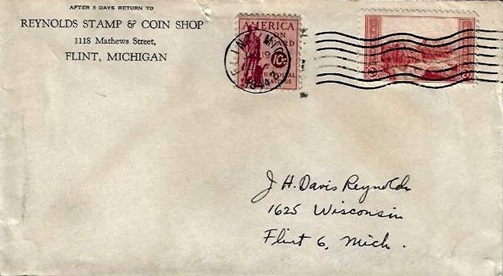 AFTER 5 DAYS RETURN TO
REYNOLDS STAMP & COIN SHOP
1118 Mathews Street,
FLINT, MICHIGAN
AMERICA
ON
FLINT
1944
J. H. Davis Reynolds
1625 Wisconsin
Flint 6, Mich.